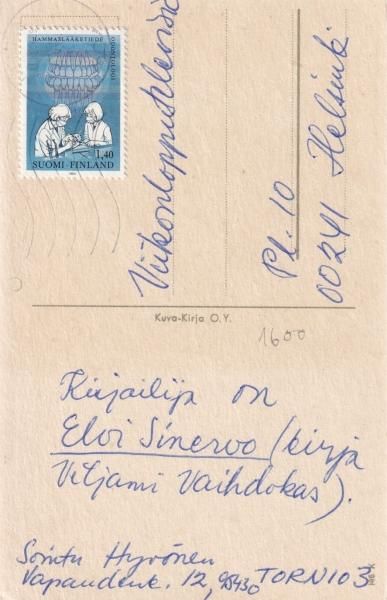 HAMMASLÄÄKETIEDE
ODONTOLOGI
1,40
SUOMI-FINLAND
Pl. 10
00241 Helsinki
Kuva-Kirja O.Y.
1600
Kirjailija on
Elvi Sinervo (kirja
Viljami Vaihdokas).
Hyvönen
12, 95430 TORNIO 3